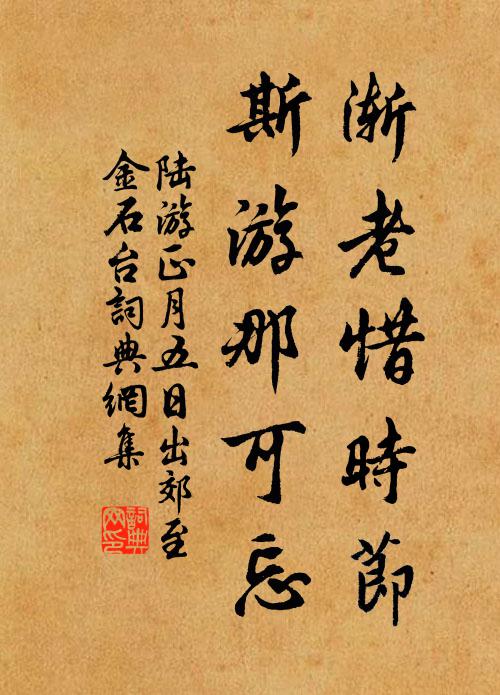 漸老惜時節
斯游那可忘
陸游正月五日出郊至
金石台詞典網集